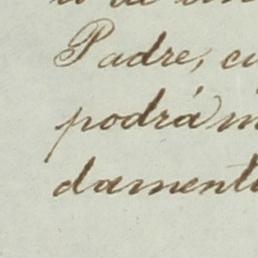 Padre, cu
podrá m
damente